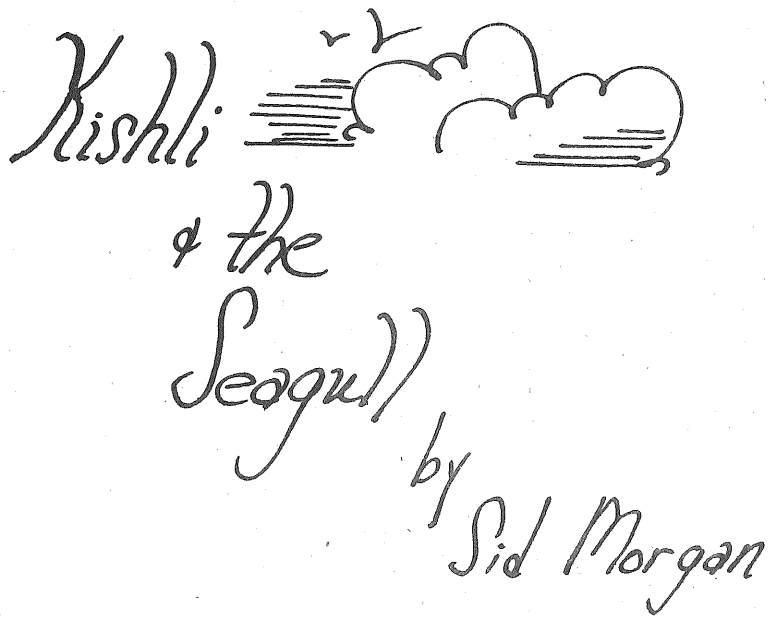 Kishli
& the
Seagull
by
Sid Morgan